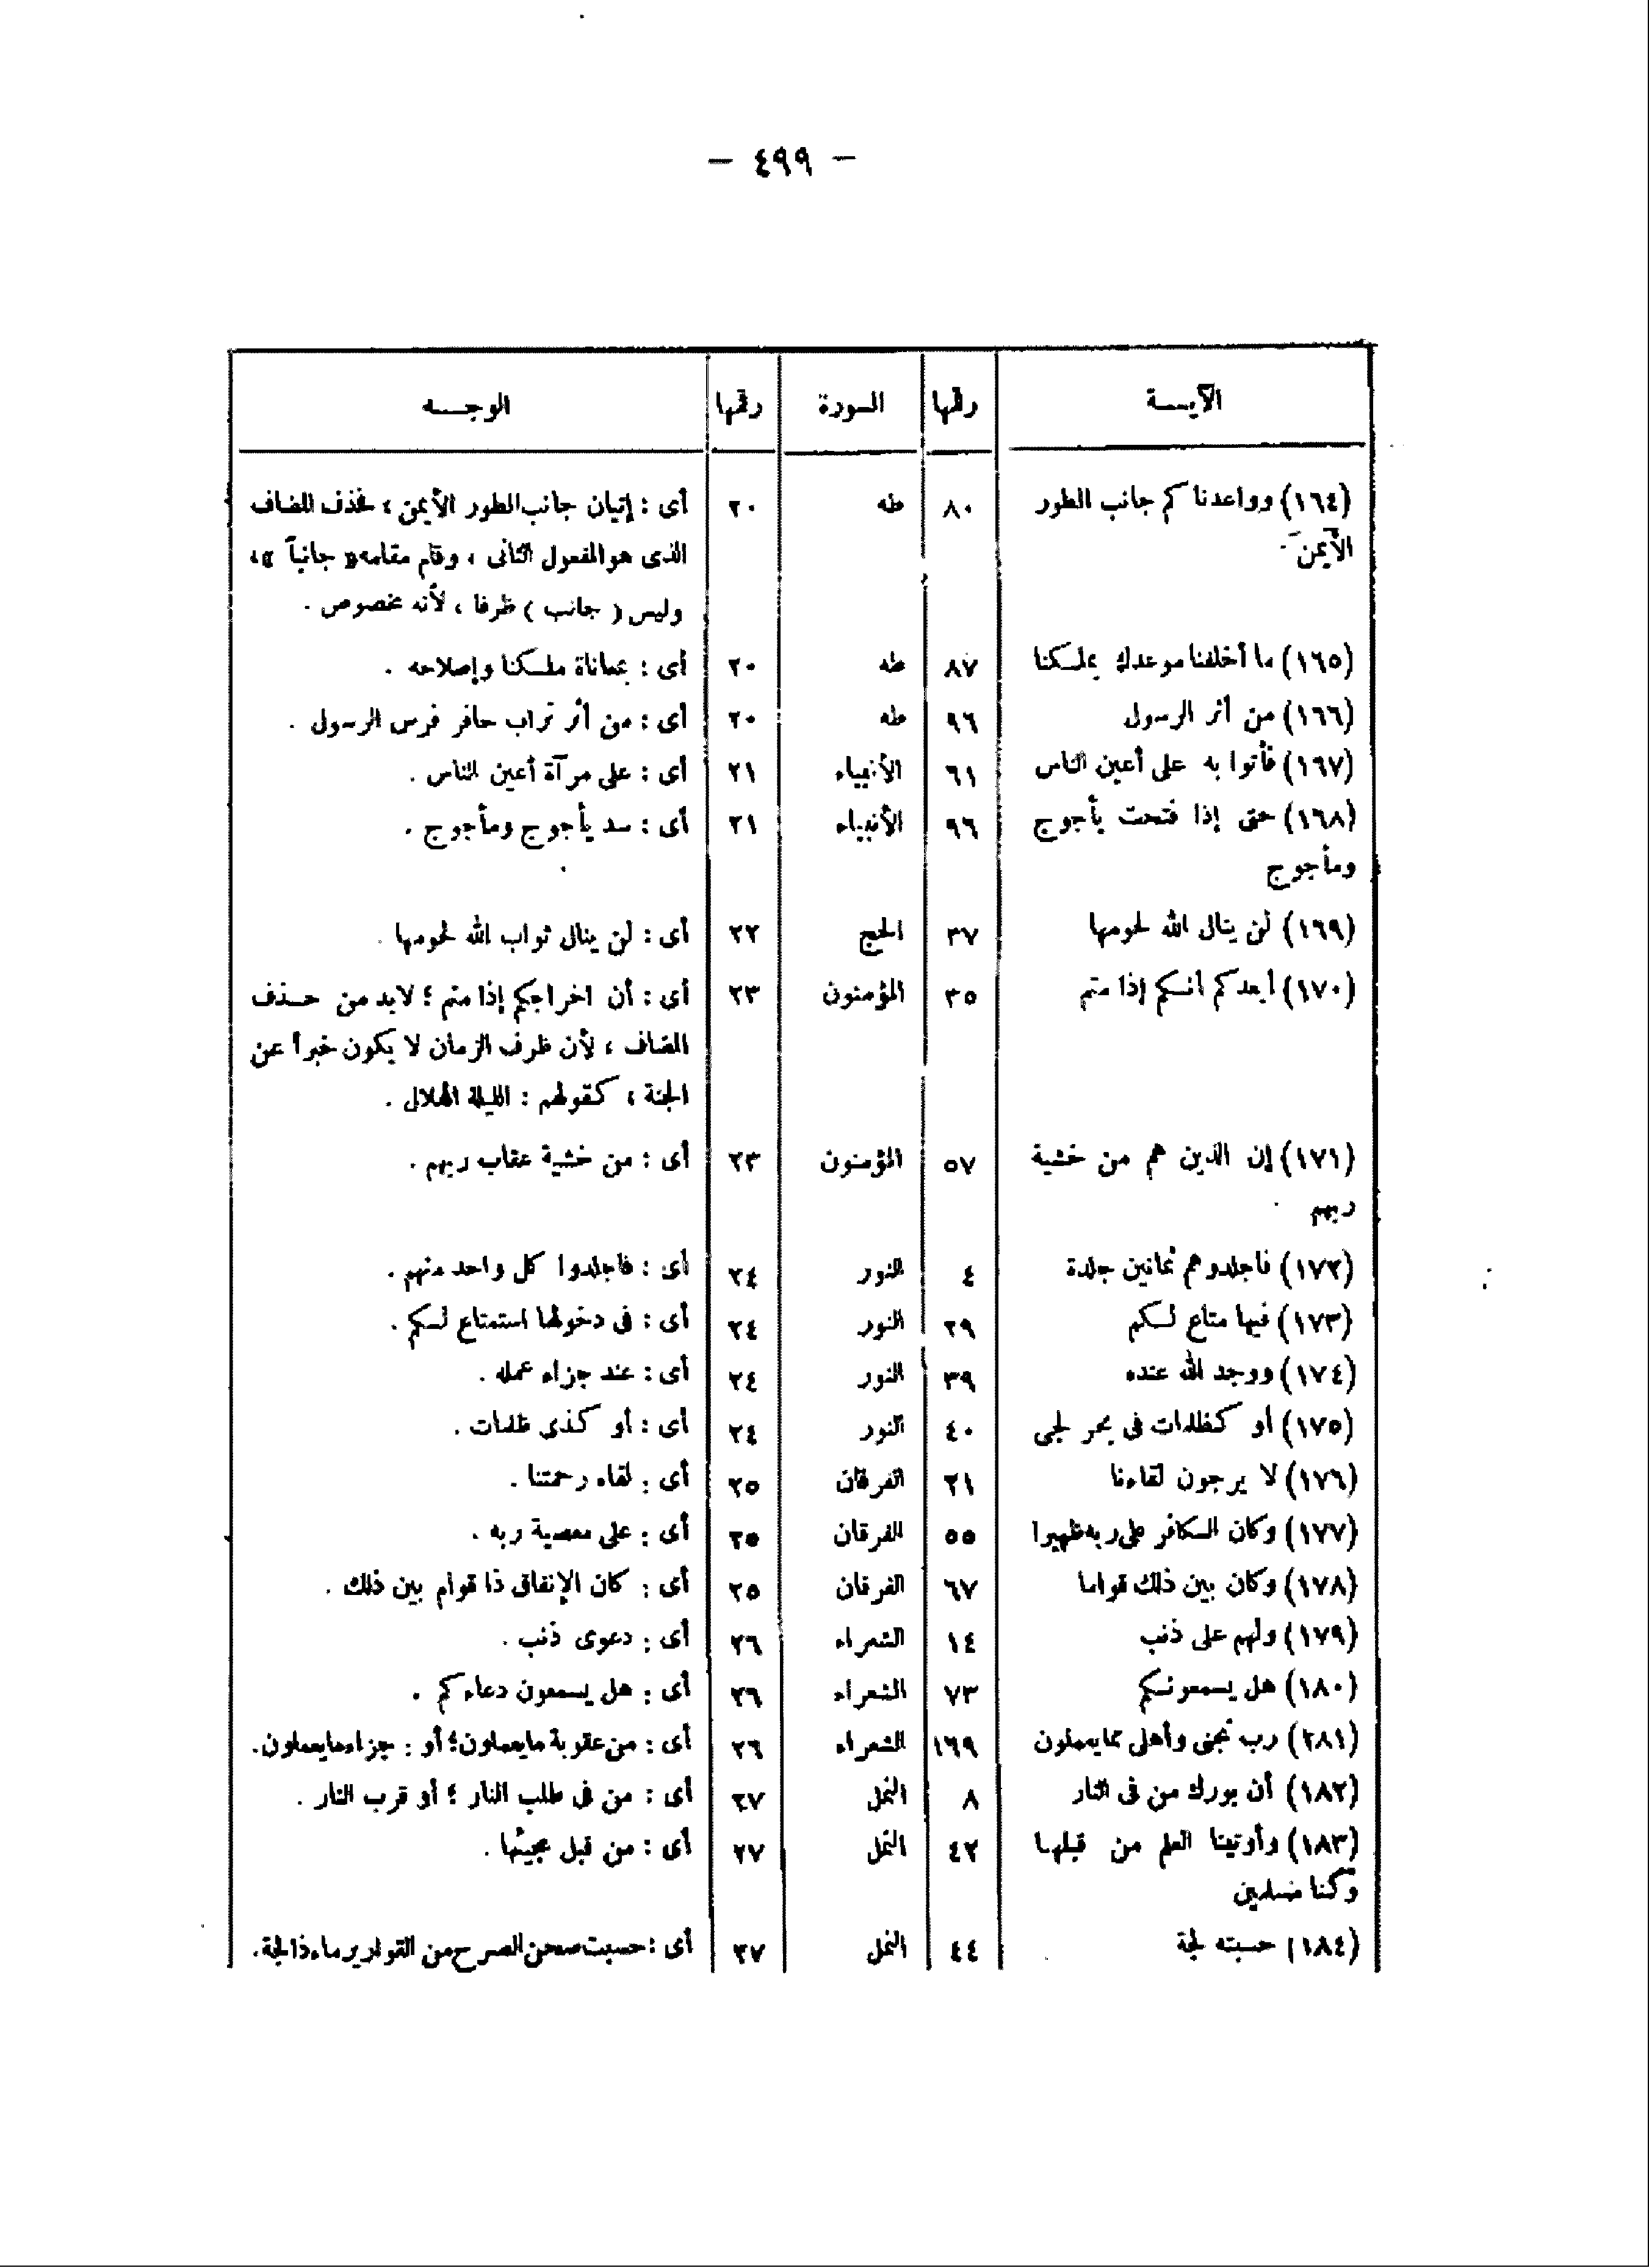 — ٤٩٩ —
الآيـــة رقمها السورة رقمها الوجـــه
(١٦٤) وواعدناكم جانب الطور ٨٠ طه ٢٠ أى : إتيان جانب الطور الأيمن ، فحذف المضاف
الأيمن الذى هو المفعول الثانى ، وقام مقامه « جانباً » ،
وليس ( جانب ) ظرفا ، لأنه مخصوص .
(١٦٥) ما أخلفنا موعدك بملكنا ٨٧ طه ٢٠ أى : بمعاناة ملكنا وإصلاحه .
(١٦٦) من أثر الرسول ٩٦ طه ٢٠ أى : من أثر تراب حافر فرس الرسول .
(١٦٧) فأتوا به على أعين الناس ٦١ الأنبياء ٢١ أى : على مرآة أعين الناس .
(١٦٨) حتى إذا فتحت يأجوج ٩٦ الأنبياء ٢١ أى : سد يأجوج ومأجوج .
ومأجوج
(١٦٩) لن ينال الله لحومها ٣٧ الحج ٢٢ أى : لن ينال ثواب الله لحومها .
(١٧٠) أيعدكم أنكم إذا متم ٣٥ المؤمنون ٢٣ أى : أن اخراجكم إذا متم ؛ لابد من حـذف
المضاف ، لأن ظرف الزمان لا يكون خبراً عن
الجثة ، كقولهم : الليلة الهلال .
(١٧١) إن الذين هم من خشية ٥٧ المؤمنون ٢٣ أى : من خشية عقاب ربهم .
ربهم
(١٧٢) فاجلدوهم ثمانين جلدة ٤ النور ٢٤ أى : فاجلدوا كل واحد منهم .
(١٧٣) فيها متاع لكم ٢٩ النور ٢٤ أى : فى دخولها استمتاع لكم .
(١٧٤) ووجد الله عنده ٣٩ النور ٢٤ أى : عند جزاء عمله .
(١٧٥) أو كظلمات فى بحر لجى ٤٠ النور ٢٤ أى : أو كذى ظلمات .
(١٧٦) لا يرجون لقاءنا ٢١ الفرقان ٢٥ أى : لقاء رحمتنا .
(١٧٧) وكان الكافر على ربه ظهيرا ٥٥ الفرقان ٢٥ أى : على معصية ربه .
(١٧٨) وكان بين ذلك قواما ٦٧ الفرقان ٢٥ أى : كان الإنفاق ذا قوام بين ذلك .
(١٧٩) ولهم على ذنب ١٤ الشعراء ٢٦ أى : دعوى ذنب .
(١٨٠) هل يسمعونكم ٧٣ الشعراء ٢٦ أى : هل يسمعون دعاءكم .
(٢٨١) رب نجنى وأهلى مما يعملون ١٦٩ الشعراء ٢٦ أى : من عقوبة ما يعملون ؛ أو : جزاء ما يعملون .
(١٨٢) أن بورك من فى النار ٨ النمل ٢٧ أى : من فى طلب النار ؛ أو قرب النار .
(١٨٣) وأوتينا العلم من قبلهـا ٤٢ النمل ٢٧ أى : من قبل مجيئها .
وكنا مسلمين
(١٨٤) حسبته لجة ٤٤ النمل ٢٧ أى : حسبت صحن الصرح من القوارير ماء ذا لجة .